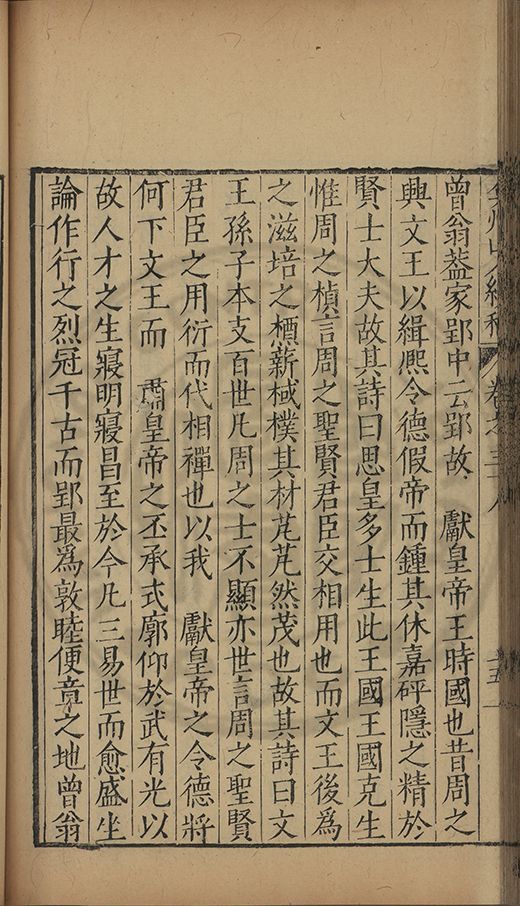 曾翁葢家郢中云郢故 獻皇帝王時國也昔周之
興文王以緝熙令德假帝而鍾其休嘉砰隱之精於
賢士大夫故其詩曰思皇多士生此王國王國克生
惟周之楨言周之聖賢君臣交相用也而文王後爲
之滋培之槱薪棫樸其材芃芃然茂也故其詩曰文
王孫子本支百世凡周之士不顯亦世言周之聖賢
君臣之用衍而代相禪也以我 獻皇帝之令德將
何下文王而 肅皇帝之丕承式廓仰於武有光以
故人才之生寢明寢昌至於今凡三易世而愈盛坐
論作行之烈冠千古而郢最爲敦睦便章之地曾翁